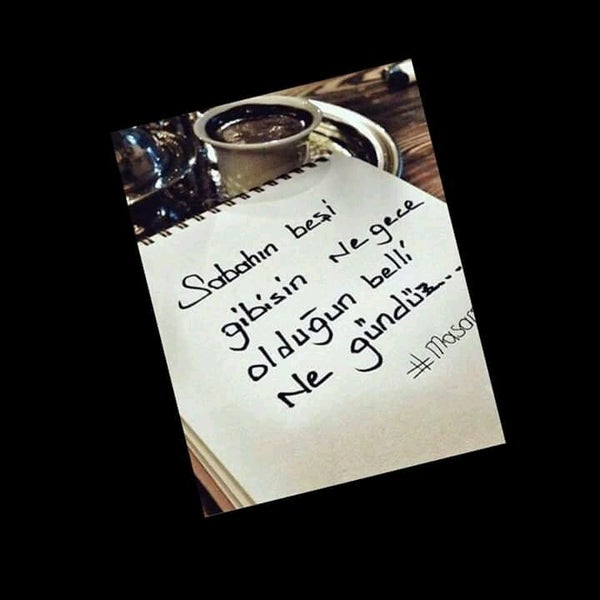 Sabahın beşi
gibisin Ne gece
olduğun belli
Ne gündüz...